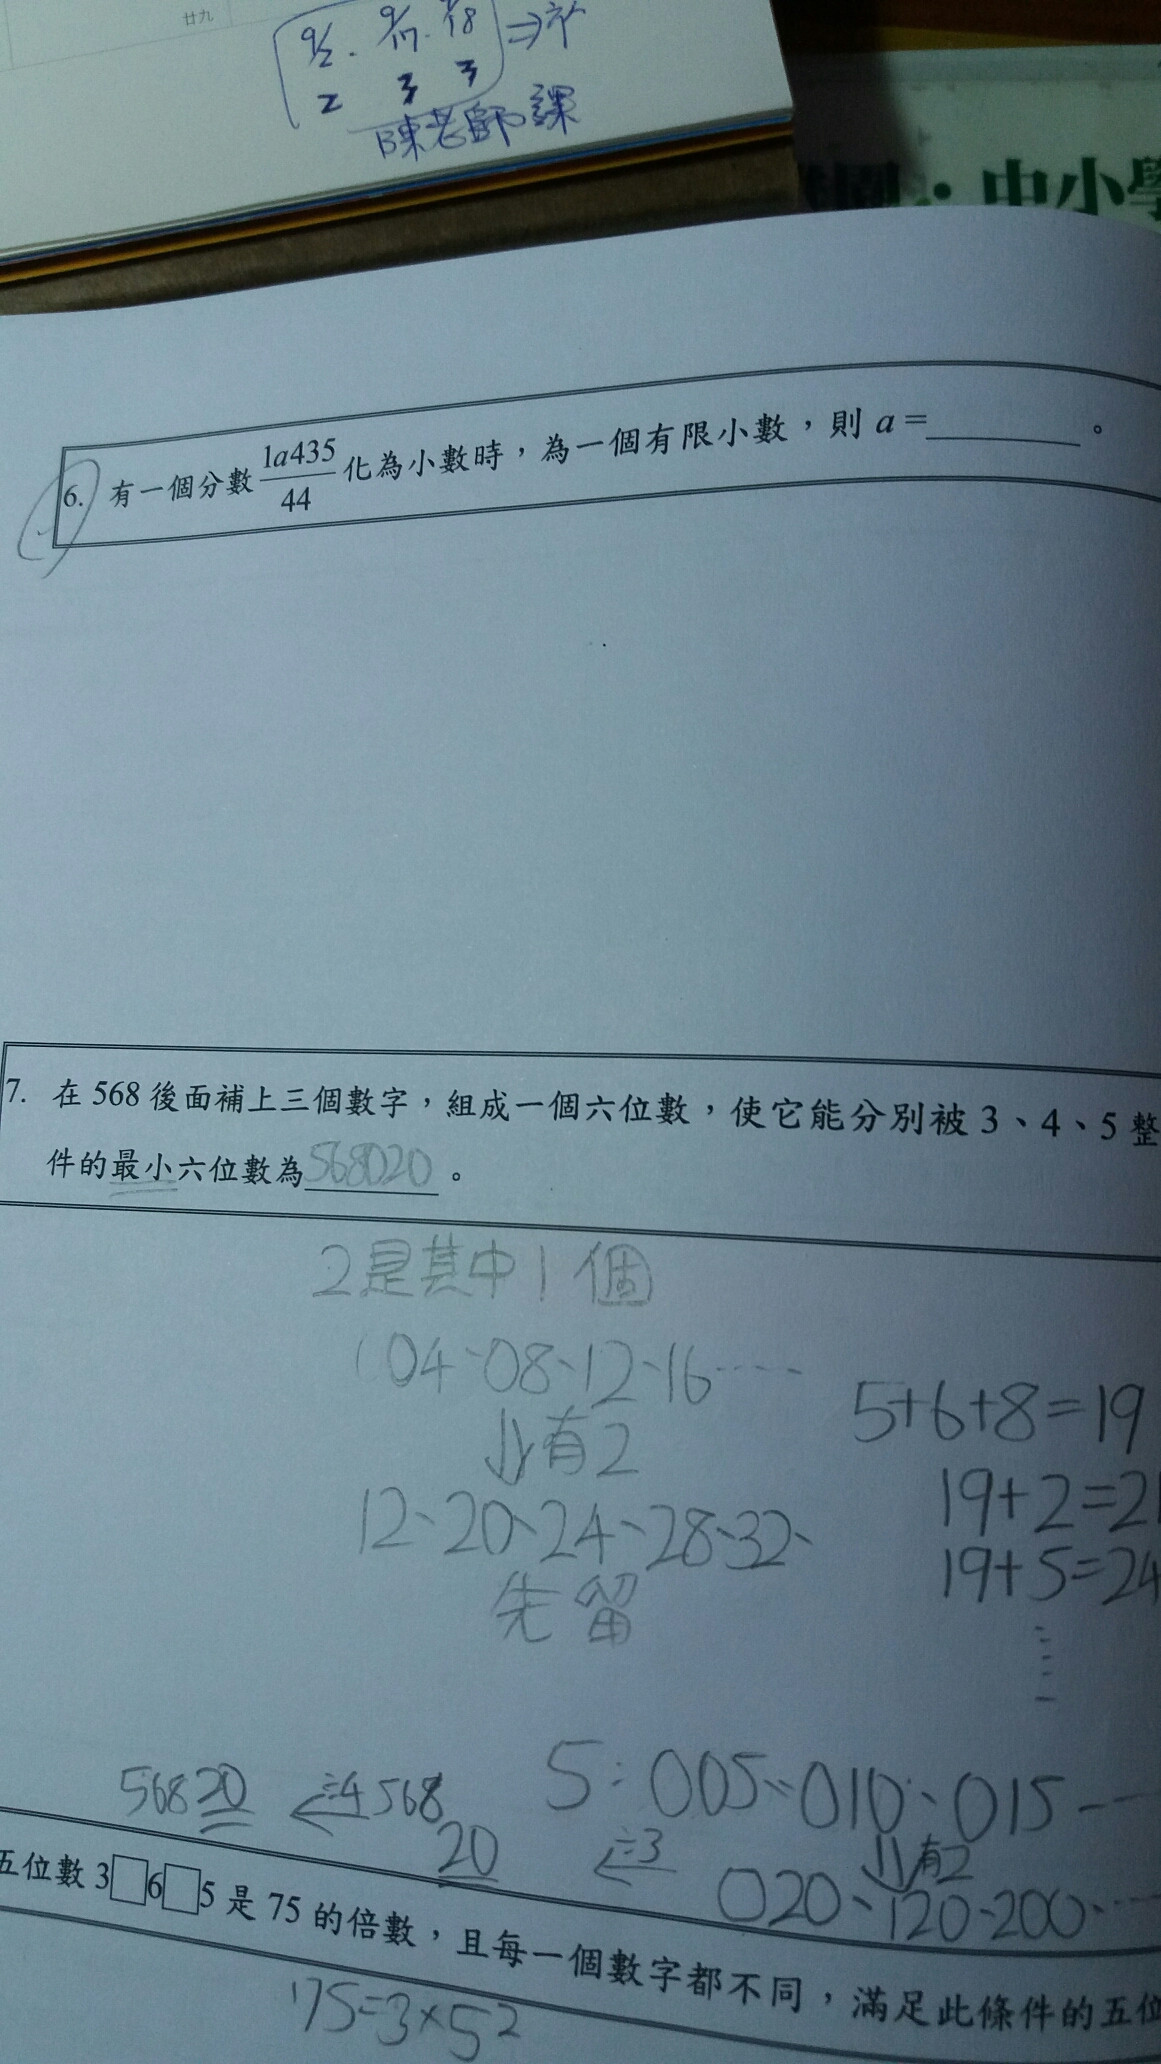 廿九
9/2. 9/17. 9/18 ⇒
2 3 3
陳老師課
中小學
6. 有一個分數 1a435/44 化為小數時，為一個有限小數，則 a =________。
7. 在 568 後面補上三個數字，組成一個六位數，使它能分別被 3、4、5 整
件的最小六位數為568020。
2是其中1個
(04、08、12、16……
⇓有2
12、20、24、28、32、
先留
5+6+8=19
19+2=21
19+5=24
5：005、010、015
⇓有2
020、120、200、
÷3
568
20
÷4
56820
五位數 3□6□5 是 75 的倍數，且每一個數字都不同，滿足此條件的五位
75=3×5²